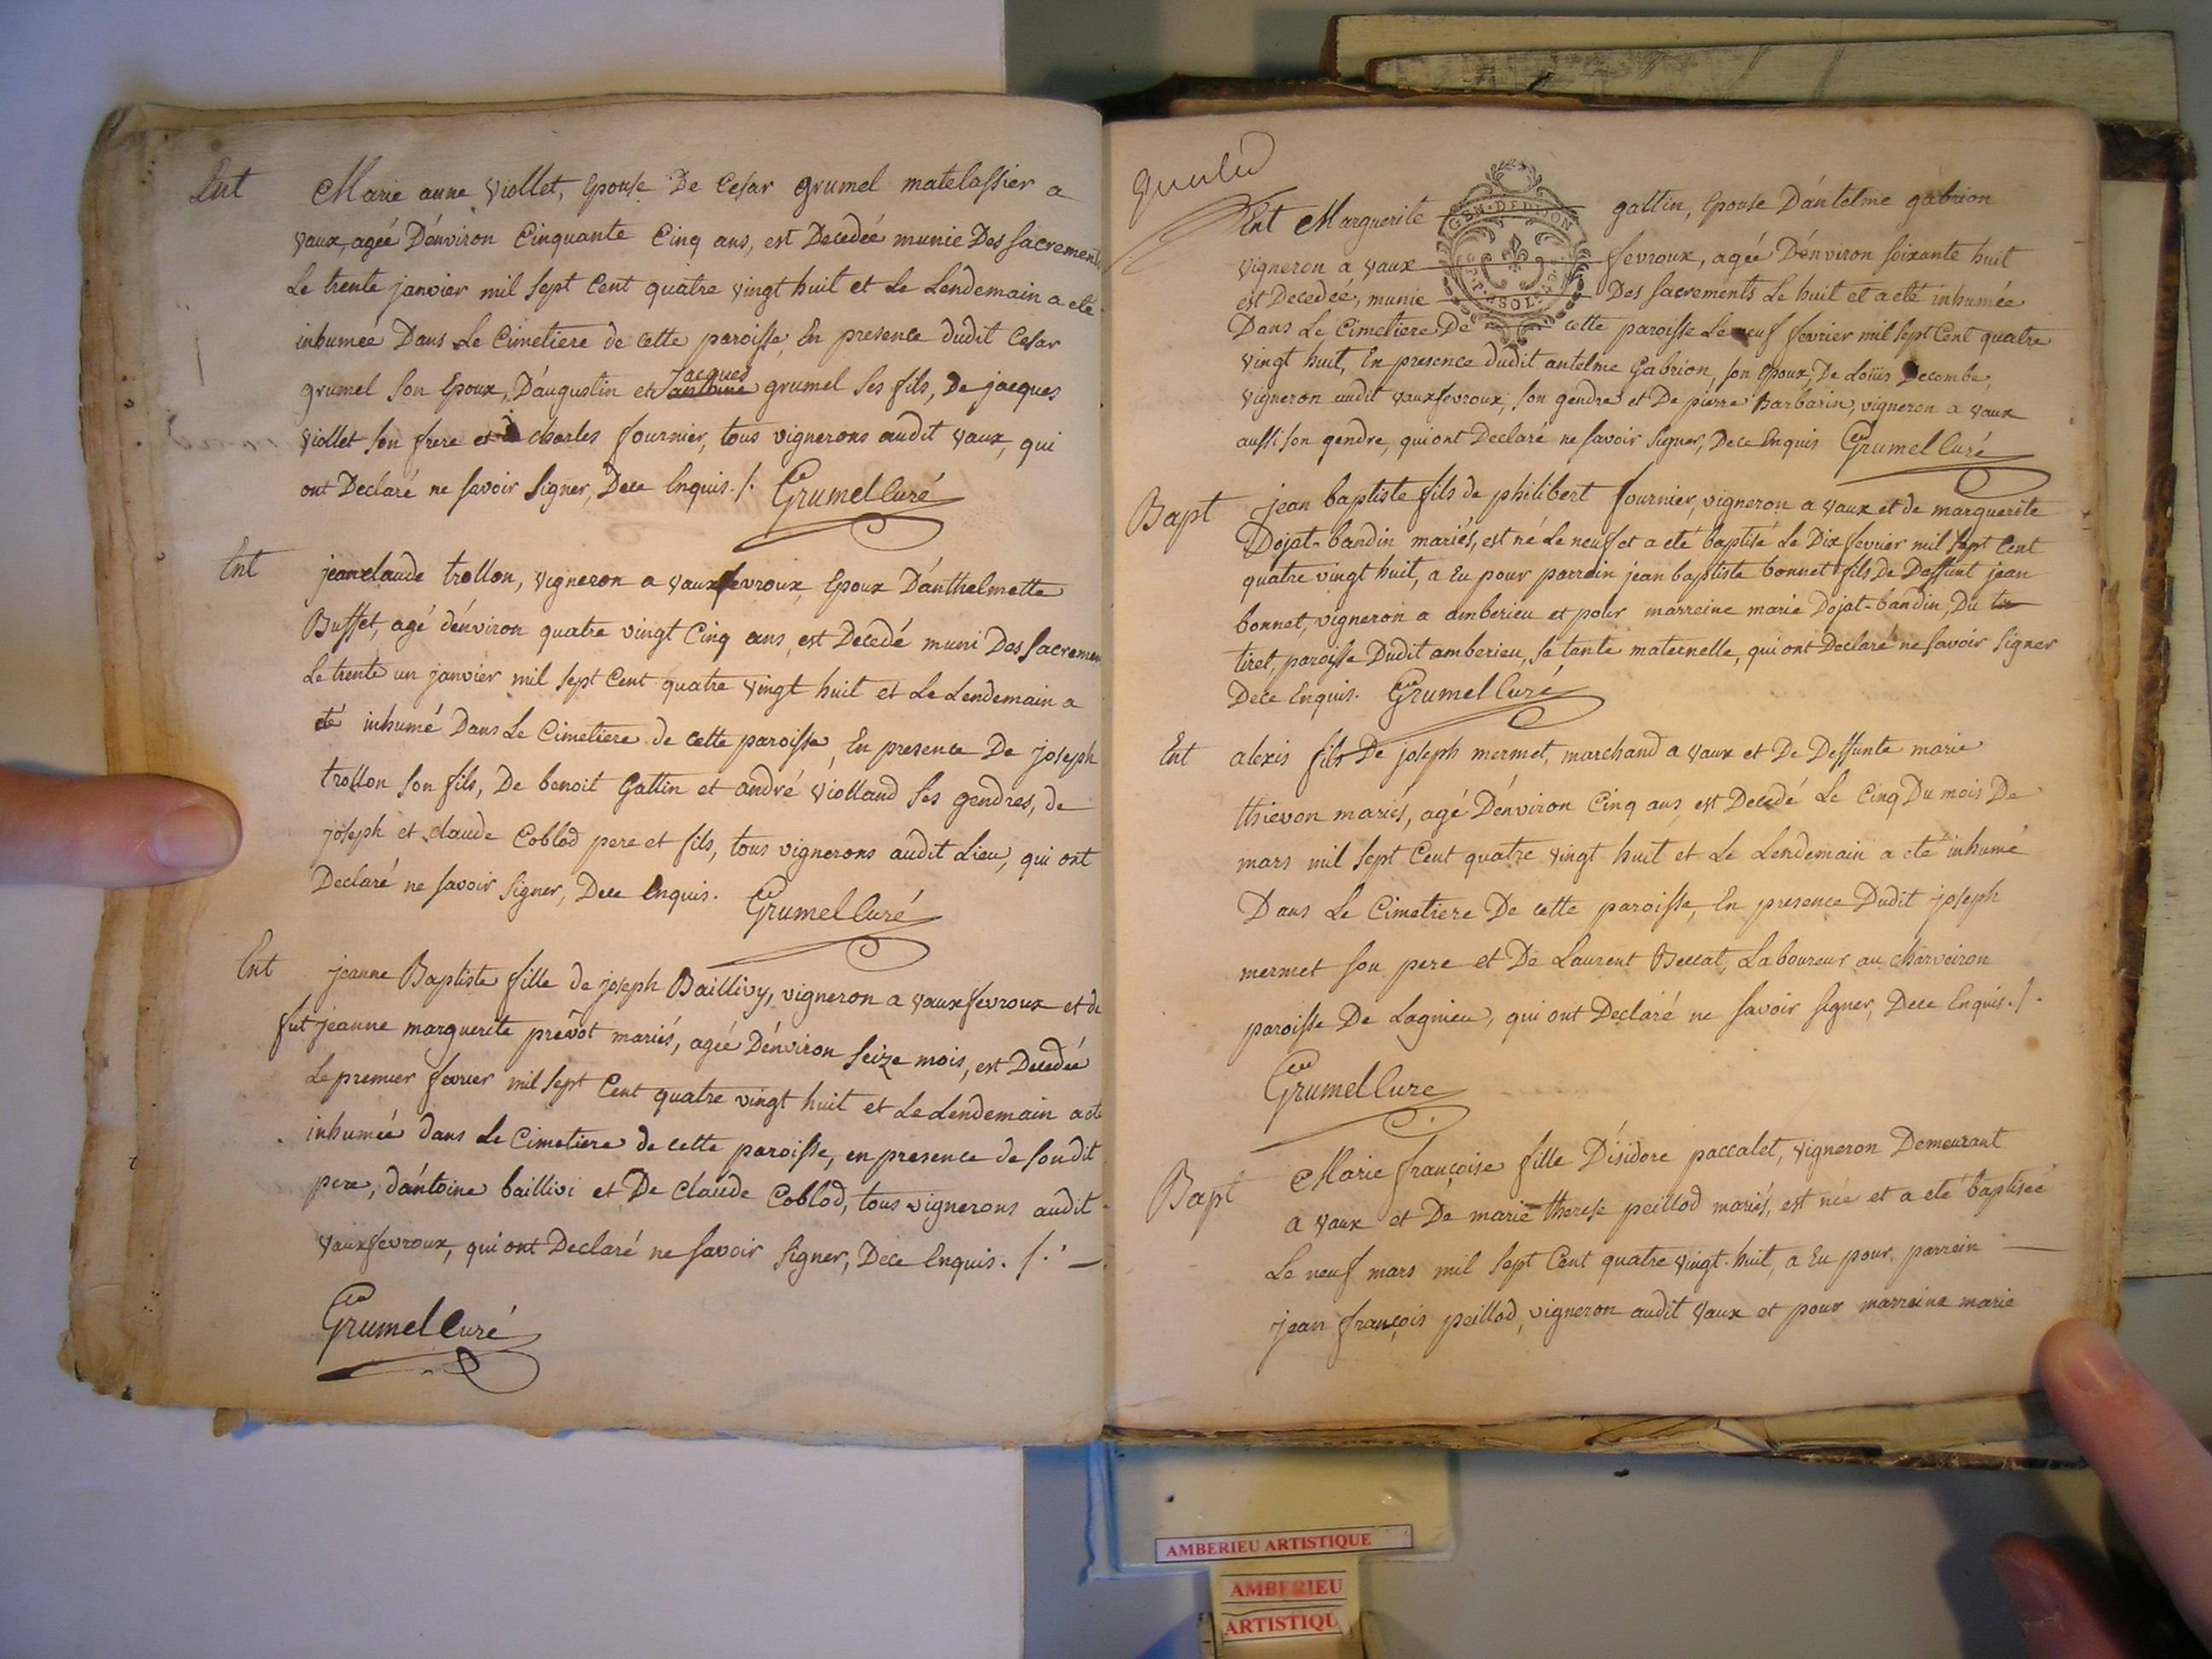 Ent Marie anne Viollet, Epouse De Cesar grumel matelassier a
Vaux, agée D'énviron Cinquante Cinq ans, est Decedéé munie Des sacrements
Le trente janvier mil sept Cent quatre vingt huit et Le Lendemain a eté
inhumée Dans Le Cimetiere de cette paroisse, En presence dudit Cesar
grumel son Epoux, D'augustin et jacques antoine grumel ses fils, De jacques
Viollet son frere et charles fournier, tous vignerons audit Vaux, qui
ont Declaré ne savoir signer, De ce Enquis ./. Grumel Curé
Ent jean claude trollon, vigneron a Vauxfevroux, Epoux D'anthelmette
Buffet, agé d'énviron quatre vingt Cinq ans, est Decedé muni Des sacremen
Le trente un janvier mil sept Cent quatre vingt huit et Le Lendemain a
eté inhumé Dans Le Cimetiere de cette paroisse, En presence De joseph
trollon son fils, De benoit Gattin et andré Violland ses gendres, de
joseph et claude Coblod pere et fils, tous vignerons audit Lieu, qui ont
Declaré ne savoir signer, De ce Enquis. Grumel Curé
Ent jeanne Baptiste fille de joseph Baillivy, vigneron a vauxfevroux et de
fut jeanne marguerite prévôt mariés, agéé D'énviron seize mois, est Decedéé
Le premier fevrier mil sept Cent quatre vingt huit et Le Lendemain a eté
inhumée dans Le Cimetiere de cette paroisse, en presence de son dit
pere, d'antoine baillivi et De Claude Coblod, tous vignerons audit
Vauxfevroux, qui ont Declaré ne savoir signer, De ce Enquis. /.
Grumel Curé
Ent Marguerite gattin, Epouse D'ántelme gabrion
GEN. DE DIJON
SOL
vigneron a vaux fevroux, agéé D'énviron soixante huit
est Decedéé, munie Des sacrements Le huit et a eté inhumée
Dans Le Cimetiere De cette paroisse Le neuf fevrier mil sept Cent quatre
vingt huit, En presence dudit antelme Gabrion, son Epoux, De Loüis Decombe,
vigneron audit vauxfevroux, son gendre et De pierre Barbarin, vigneron a vaux
aussi son gendre, qui ont Declaré ne savoir signer, De ce Enquis Grumel Curé
Bapt jean baptiste fils de philibert fournier, vigneron a vaux et de marguerite
Dojat-bandin mariés, est né Le neuf et a eté baptisé Le Dix fevrier mil sept Cent
quatre vingt huit, a Eu pour parrain jean baptiste bonnet fils De Deffunt jean
bonnet, vigneron a amberieu et pour marreine marie Dojat-bandin, Du
tiret, paroisse Dudit amberieu, sa tante maternelle, qui ont Declaré ne savoir signer
De ce Enquis. Grumel Curé
Ent alexis fils De joseph mermet, marchand a Vaux et De Deffunte marie
thievon mariés, agé D'énviron Cinq ans, est Decedé Le Cinq Du mois De
mars mil sept Cent quatre vingt huit et Le Lendemain a eté inhumé
Dans Le Cimetiere De cette paroisse, En presence Dudit joseph
mermet son pere et De Laurent Beccat, Laboureur au charveiron
paroisse De Lagnieu, qui ont Declaré ne savoir signer, De ce Enquis ./.
Grumel Cure
Bapt Marie françoise fille D'isidore paccalet, vigneron Demeurant
a vaux et De marie therese peillod mariés, est née et a eté baptisée
Le neuf mars mil sept Cent quatre vingt-huit, a Eu pour parrain
jean françois peillod, vigneron audit Vaux et pour marreine marie
AMBERIEU ARTISTIQUE
AMBERIEU
ARTISTIQU